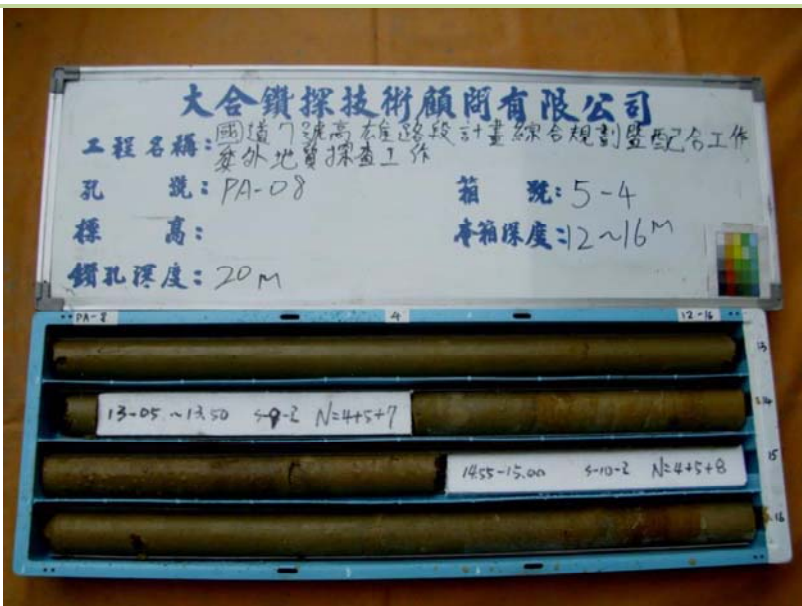 大合鑽探技術顧問有限公司
工程名稱：國道7號高雄路段計畫綜合規劃暨配合工作
委外地質探查工作
孔號：PA-08 箱號：5-4
標高： 本箱深度：12～16M
鑽孔深度：20M
PA-8 4 12-16
13
13-05～13.50 S-9-2 N=4+5+7
14
15
14.55-15.00 S-10-2 N=4+5+8
16